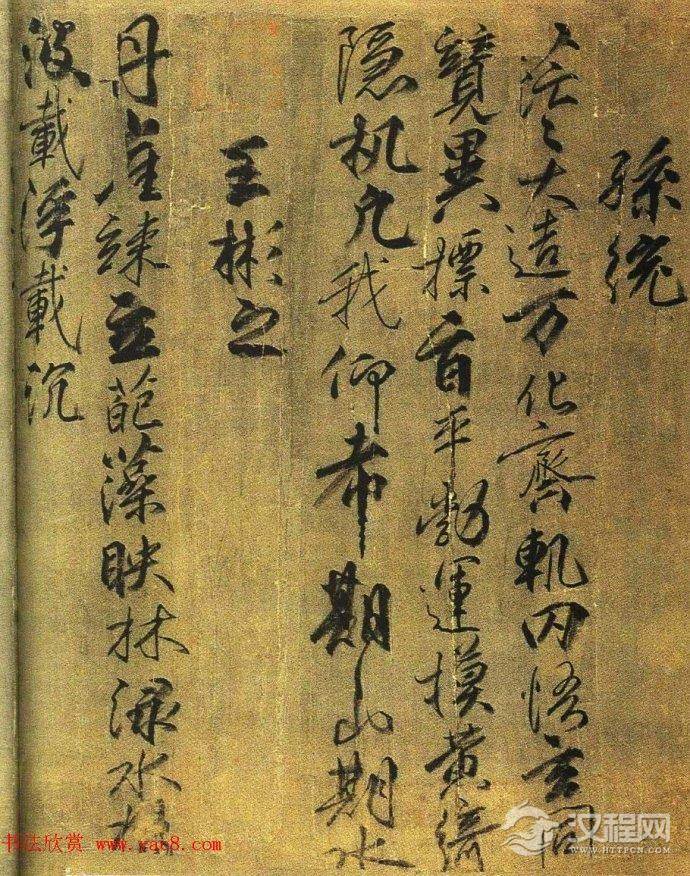 孫統
茫〻大造万化齊軌罔悟玄同
競異標旨平勃運摸黄綺
隐机凡我仰希期山期水
王彬之
丹崖竦立葩藻映林渌水揚
波載浮載沉
书法欣赏 www.yac8.com
汉程网
HTTPCN.COM